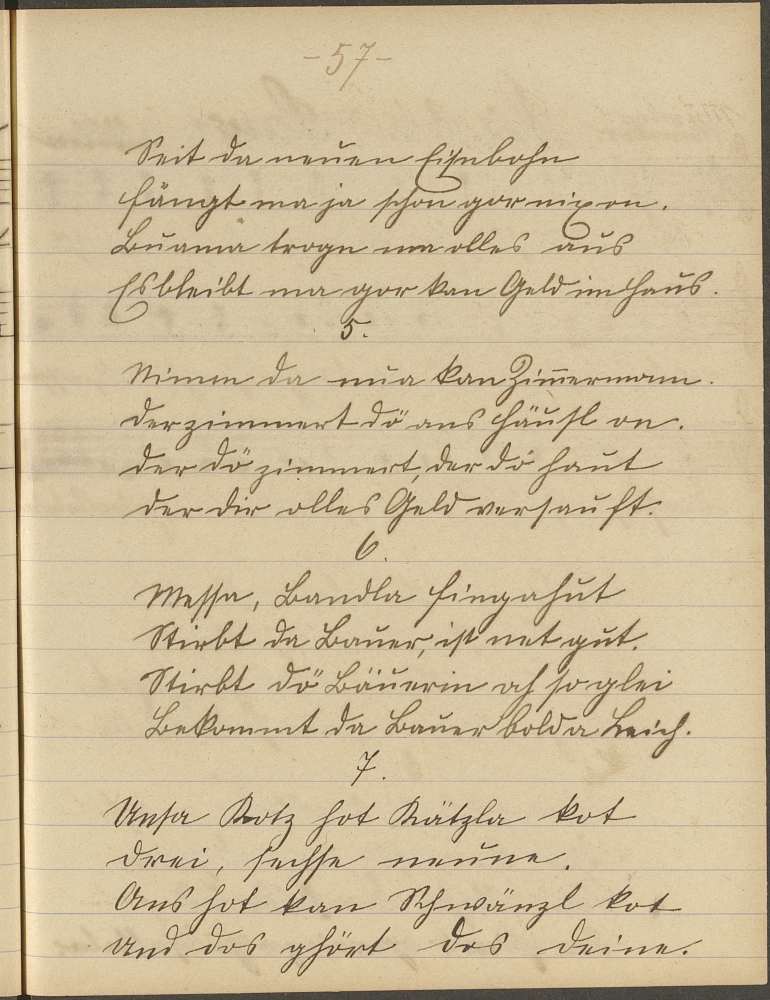 -57-
Seit da neuen Eisnbohn
fängt ma ja schon gor nix on.
Buama trogn ma olles aus
Es bleibt ma gor kan Geld im Haus.
5.
Nimm da nua kan Zimmermann.
Der zimmert dö ans Häusl on.
Der dö zimmert, der dö haut
der dir olles Geld versauft.
6.
Messa, Bandla Fingahut
Stirbt da Bauer, ist net gut.
Stirbt dö Bäuerin oh so glei
Bekommt da Bauer bold a Leich.
7.
Unsa Kotz hot Kätzla kot
Drei, sechse neune.
Ans hot kan Schwänzl kot
Und dos ghört dos deine.